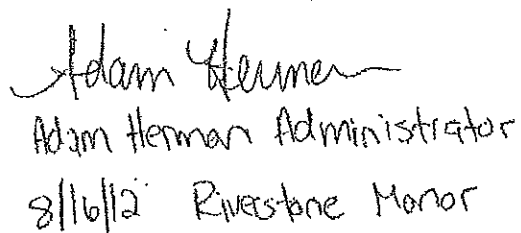 Adam Herman
Adam Herman Administrator
8/16/12 Riverstone Manor